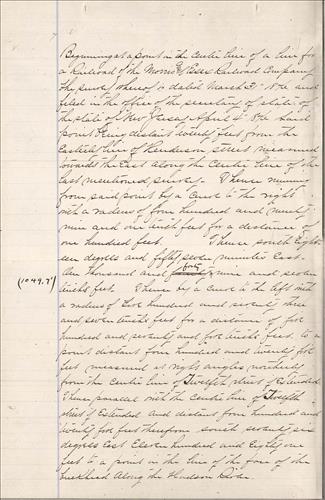 Beginning at a point in the Centre line of a line for
a Railroad of the Morris & Essex Railroad Company
the survey whereof is dated March 21st 1872 and
filed in the office of the Secretary of State of
the State of New Jersey April 4th 1872 said
point being distant twenty feet from the
Easterly line of Henderson street measured
towards the East along the Centre line of the
last mentioned survey. Thence running
from said point by a Curve to the right
with a radius of four hundred and ninety
nine and one tenth feet for a distance of
one hundred feet. Thence south Eight
een degrees and fifty seven minutes East
One thousand and forty nine and seven
(1049.7')
tenths feet. Thence by a Curve to the left with
a radius of five hundred and seventy three
and seven tenths feet for a distance of five
hundred and seventy and five tenths feet to a
point distant four hundred and twenty five
feet measured at right angles northerly
from the Centre line of Twelfth street if Extended
Thence parallel with the Centre line of Twelfth
street if Extended and distant four hundred and
twenty five feet therefrom south seventy six
degrees East Eleven hundred and Eighty one
feet to a point in the line of the face of the
bulkhead along the Hudson River.